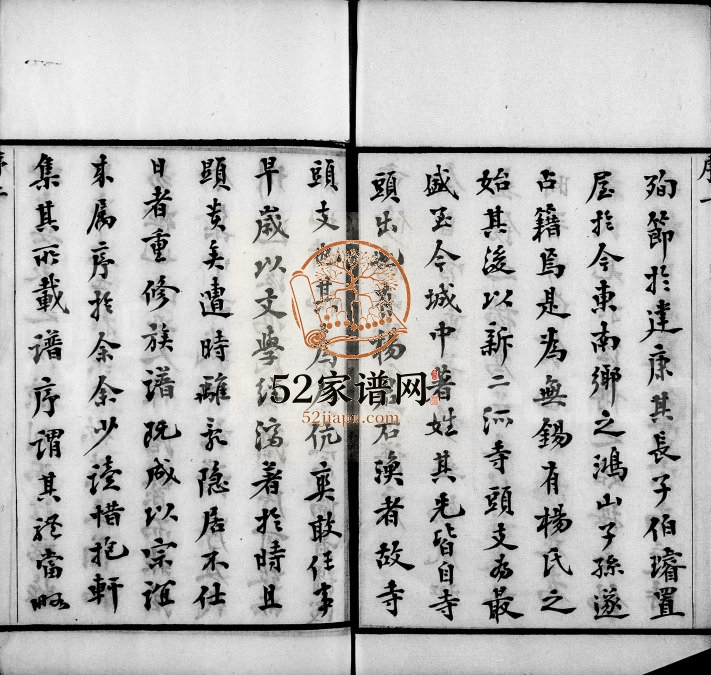 序一
殉節於建康其長子伯瑃置
屋於今東南鄉之鴻山子孫遂
占籍焉是為無錫有楊氏之
始其後以新二派寺頭支為最
盛至今城中著姓其先皆自寺
頭出 楊君渙者故寺
頭支 其為 伉爽敢任事
早歲以文學經濟著於時且
顯貴矣遭時離亂隱居不仕
日者重修族譜既成以宗誼
來屬序於余余少讀惜抱軒
集其所載譜序謂其經當略
序二
52家谱网
52jiapu.com